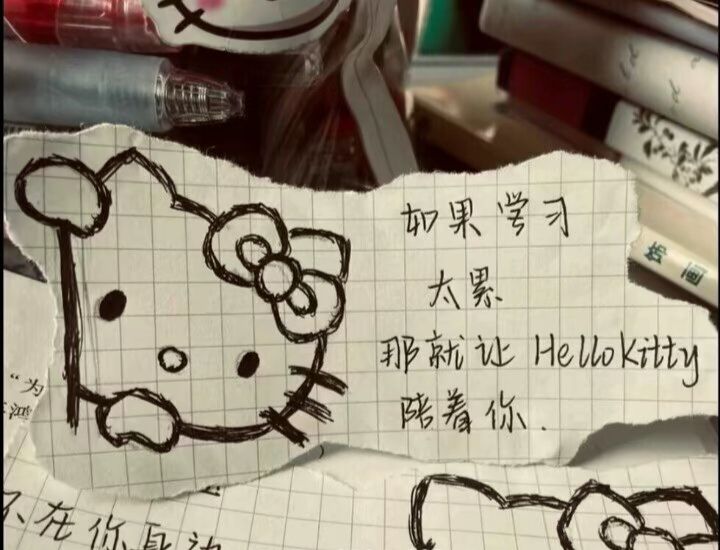 如果学习
太累
那就让 HelloKitty
陪着你.
"为
不在你身边